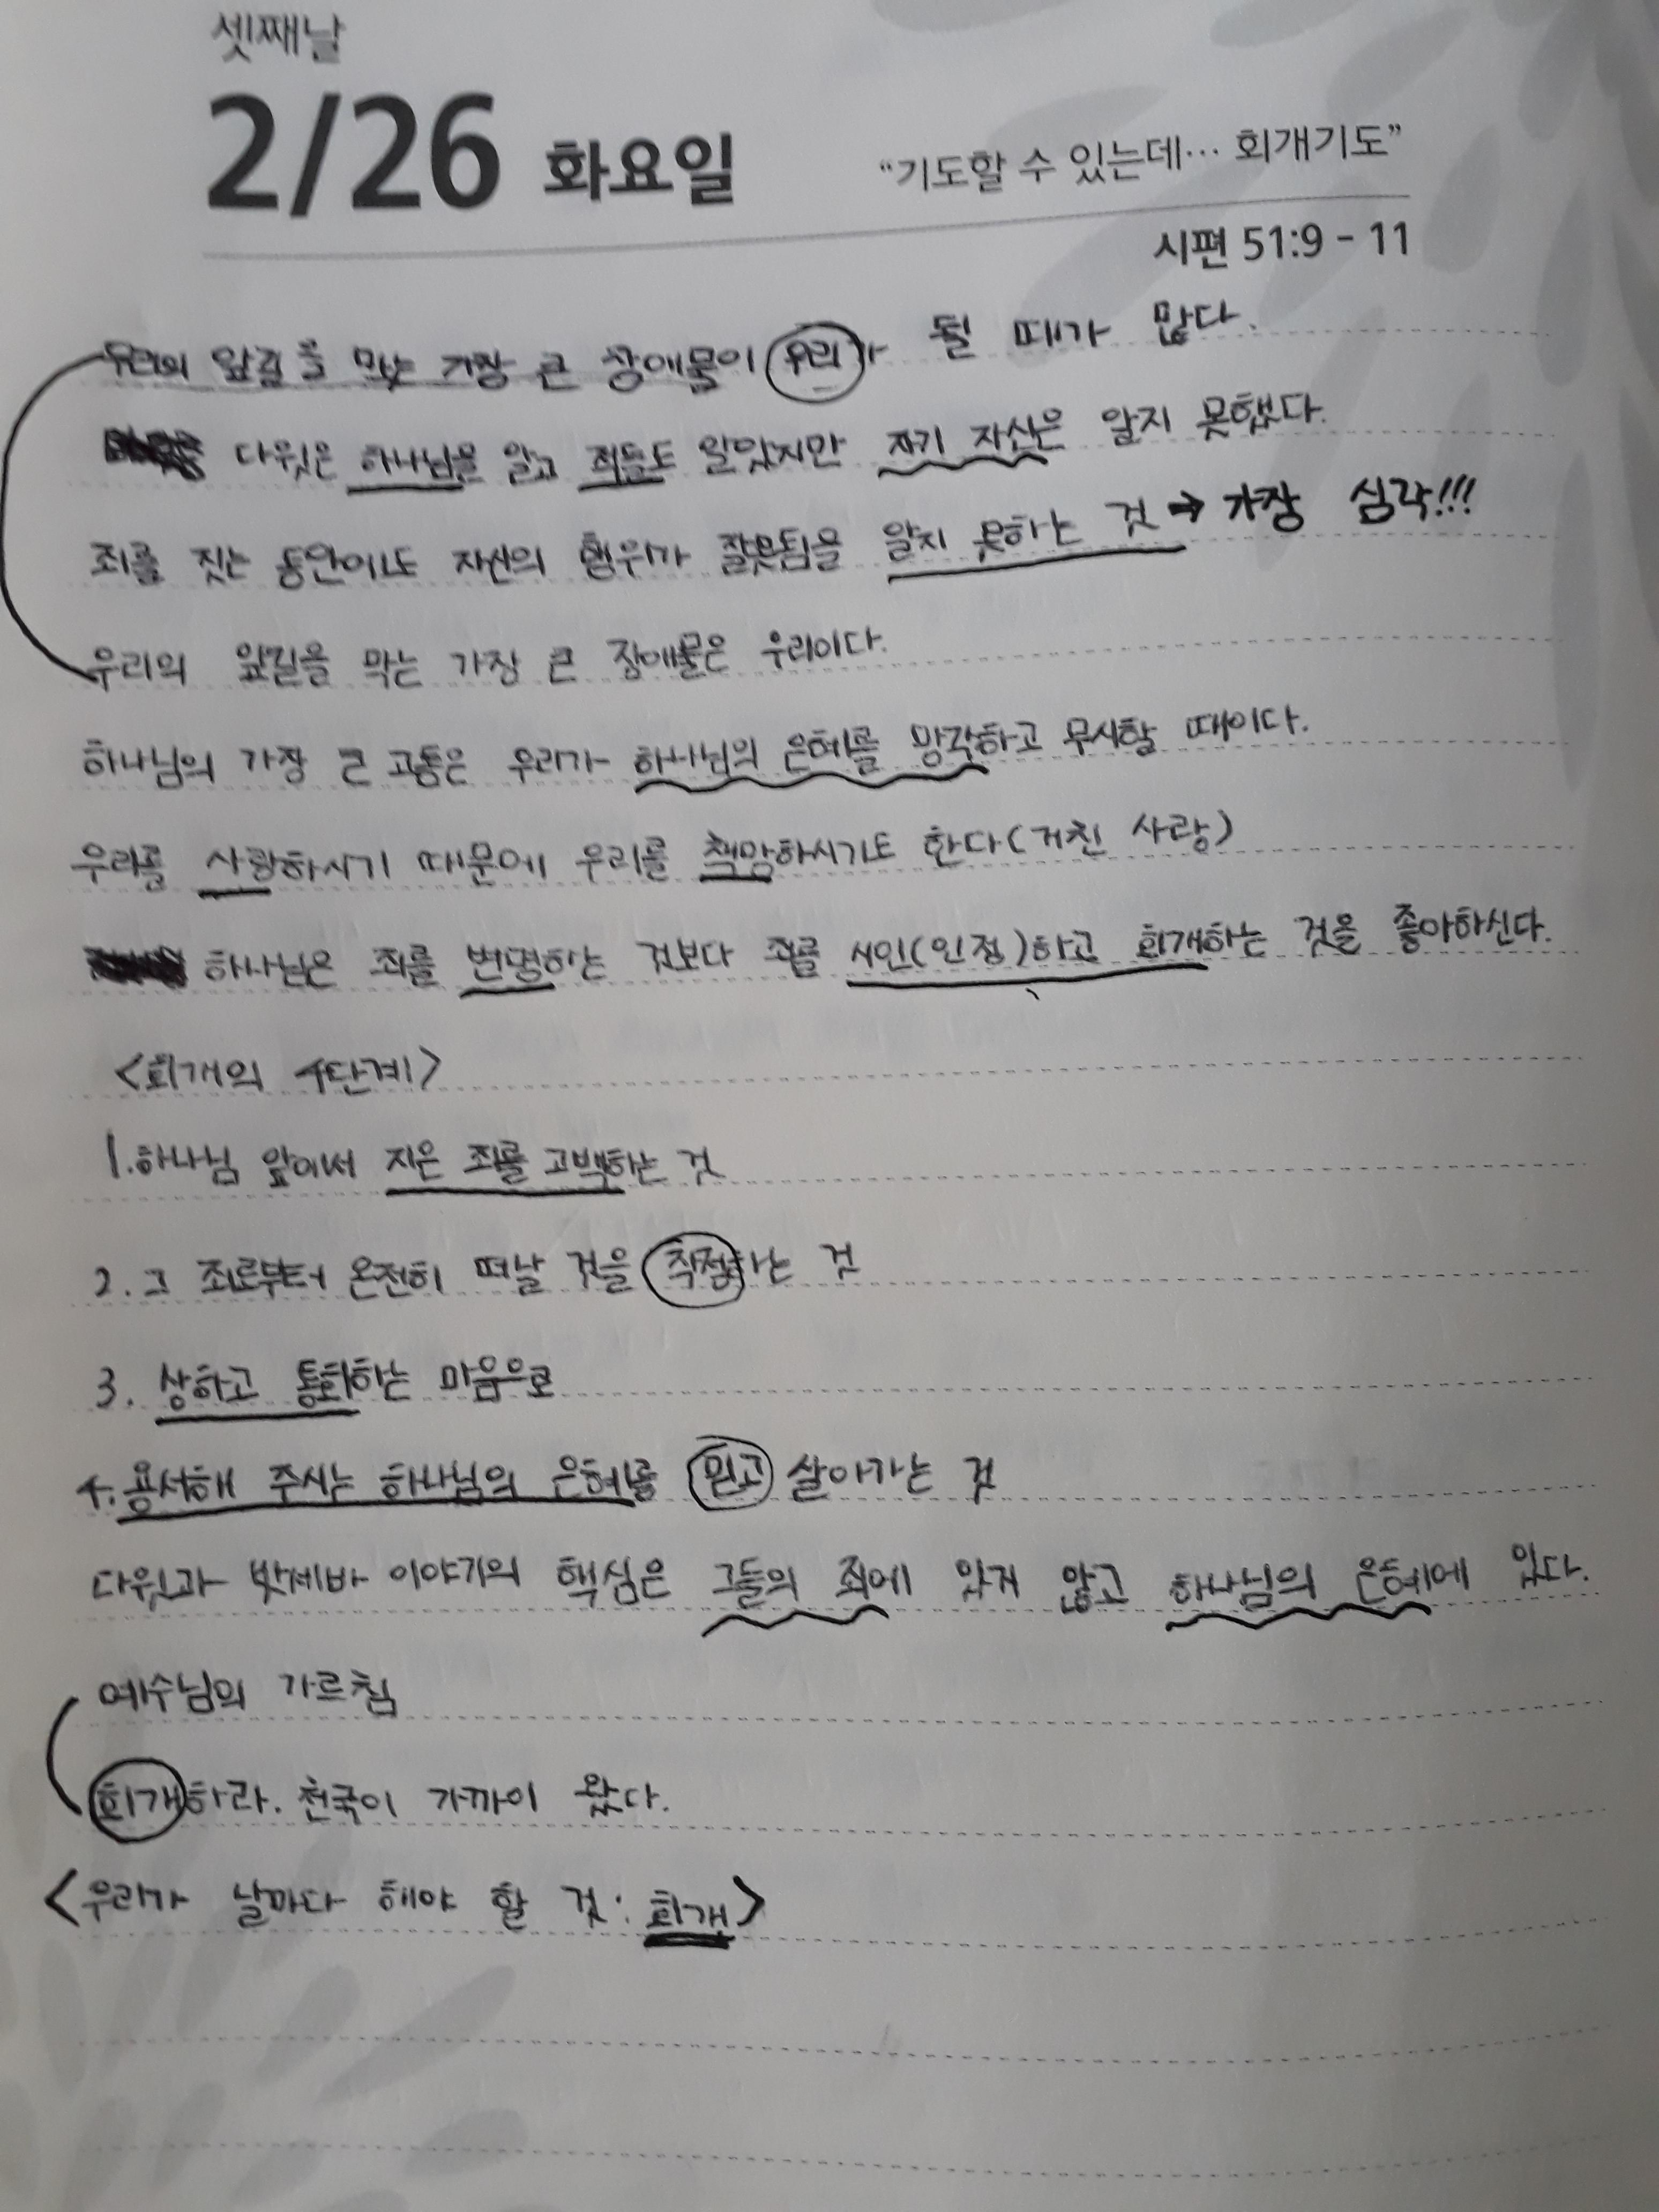 셋째날
2/26 화요일
“기도할 수 있는데… 회개기도”
시편 51:9 - 11
우리의 앞길을 막는 가장 큰 장애물이 우리가 될 때가 많다.
다윗은 하나님을 알고 죄들도 알았지만 자기 자신은 알지 못했다.
죄를 짓는 동안이나도 자신의 행위가 잘못됨을 알지 못하는 것 → 가장 심각!!!
우리의 앞길을 막는 가장 큰 장애물은 우리이다.
하나님의 가장 큰 고통은 우리가 하나님의 은혜를 망각하고 무시할 때이다.
우리를 사랑하시기 때문에 우리를 책망하시기도 한다(거친 사랑)
하나님은 죄를 변명하는 것보다 죄를 시인(인정)하고 회개하는 것을 좋아하신다.
<회개의 4단계>
1. 하나님 앞에서 지은 죄를 고백하는 것
2. 그 죄로부터 온전히 떠날 것을 작정하는 것
3. 상하고 통회하는 마음으로
4. 용서해 주시는 하나님의 은혜를 믿고 살아가는 것
다윗과 밧세바 이야기의 핵심은 그들의 죄에 있지 않고 하나님의 은혜에 있다.
예수님의 가르침
회개하라. 천국이 가까이 왔다.
<우리가 날마다 해야 할 것: 회개>